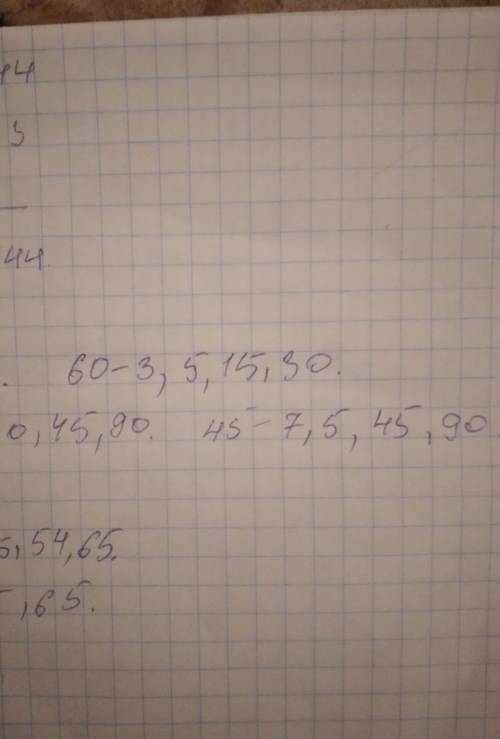 44
3
44.
. 60-3, 5, 15, 30.
0, 45, 90. 45-7, 5, 45, 90
5, 54, 65.
, 65.